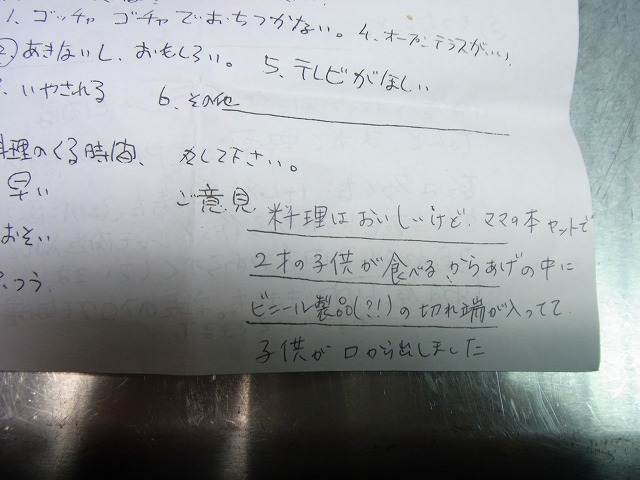 1. ゴッチャ ゴチャ でおちつかない。 4. オープンテラスがいい
②あきないし、おもしろい。 5. テレビがほしい
いやされる 6. その他
料理のくる時間、 をして下さい。
早い ご意見
料理はおいしいけど、ママの本セットで
おそい
2才の子供が食べるからあげの中に
ふつう
ビニール製品(?!)の切れ端が入ってて
子供が口から出しました